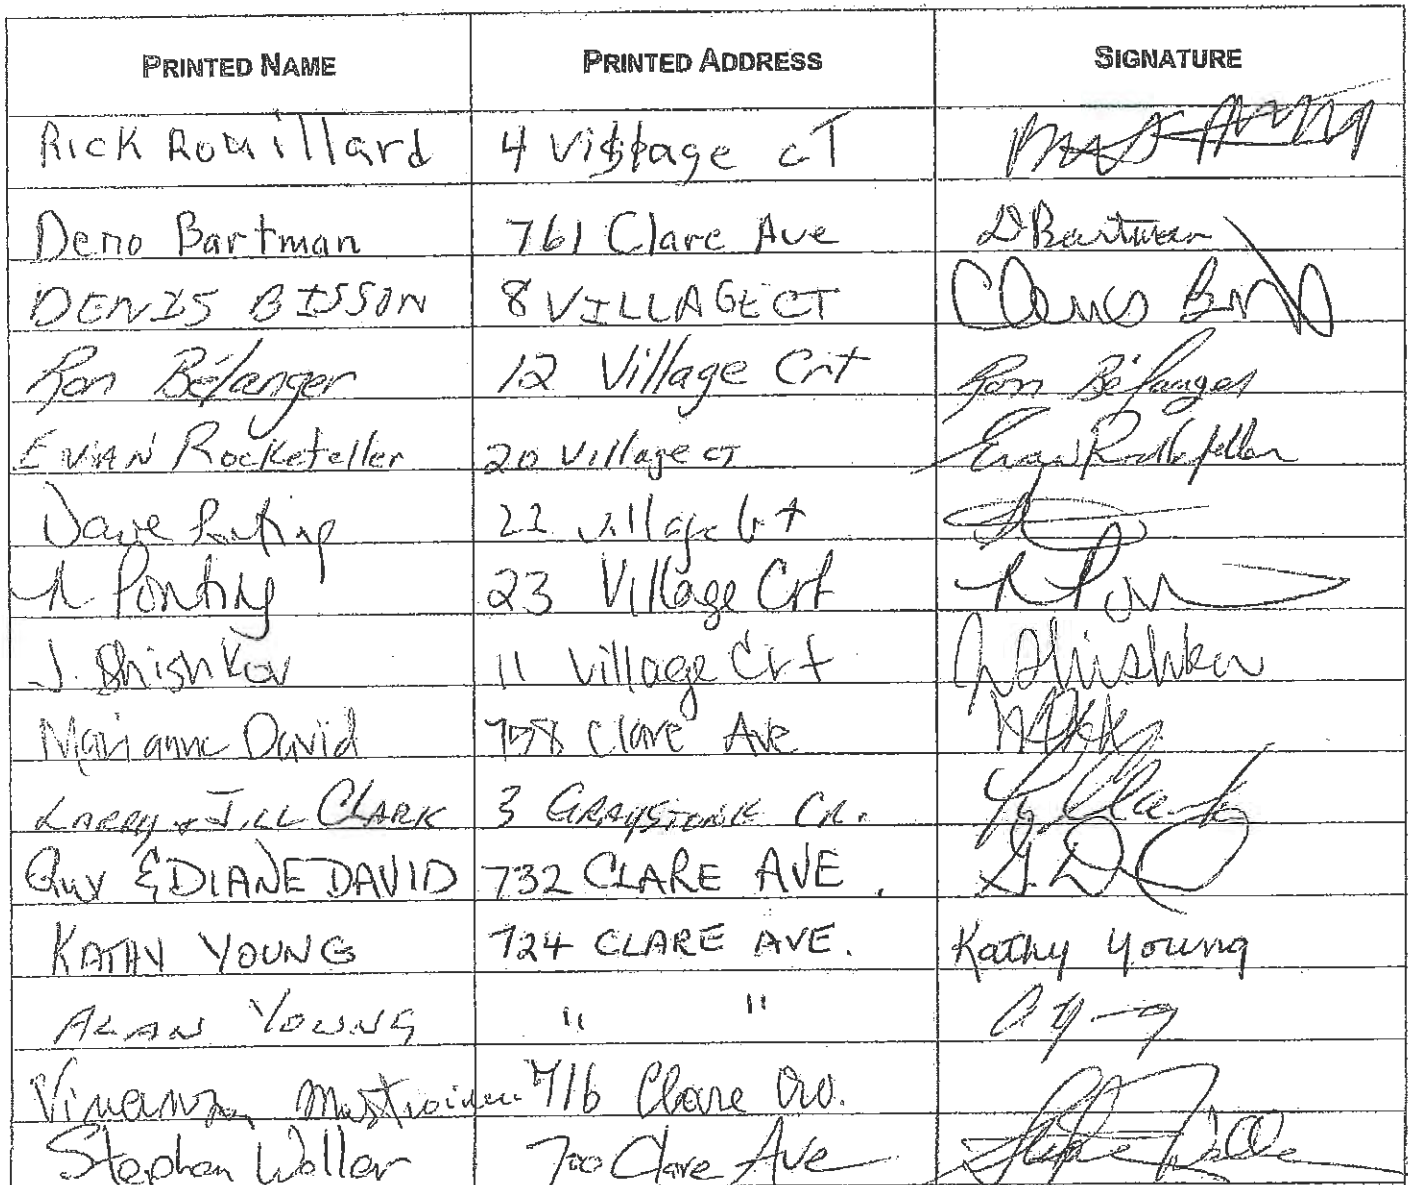 PRINTED NAME PRINTED ADDRESS SIGNATURE
Rick Rouillard 4 Village CT
Deno Bartman 761 Clare Ave D Bartman
DENIS BISSON 8 VILLAGE CT
Ron Bélanger 12 Village Crt Ron Bélanger
EVAN Rockefeller 20 Village CT Evan Rockefeller
Dave 22 village
Ponting 23 Village Crt
J. Shishkov 11 Village Crt J. Shishkov
Marianne David 758 Clare Ave
LARRY + JILL CLARK 3 GRAYSTONE CR. Clark
Guy & DIANE DAVID 732 CLARE AVE. G. D
KATHY YOUNG 724 CLARE AVE. Kathy Young
ALAN YOUNG " "
716 Clare
Stephen Waller 700 Clare Ave